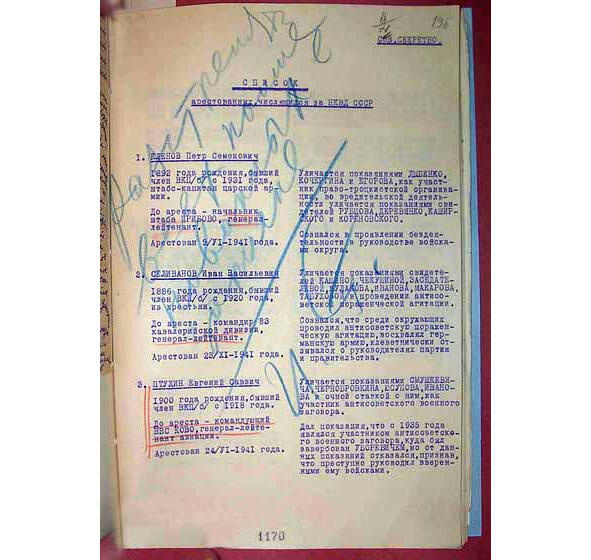 196
СОВ.СЕКРЕТНО.
СПИСОК
арестованных,числящихся за НКВД СССР
Расстрелять
всех
1. КЛЕНОВ Петр Семенович
1892 года рождения,бывший
член ВКП/б/ с 1931 года,
штабс-капитан царской ар-
мии.
До ареста - начальник
штаба ПРИБОВО, генерал-
лейтенант.
Арестован 9/VI-1941 года.
Уличается показаниями ДЫБЕНКО,
КОЧЕРГИНА и ЕГОРОВА,как участ-
ник право-троцкистской организа-
ции, во вредительской деятель-
ности уличается показаниями сви-
детелей РУБЦОВА,ДЕРЕВЯНКО,КАШИР-
СКОГО и КОРЕНОВСКОГО.
Сознался в проявлении бездея-
тельности в руководстве войска-
ми округа.
2. СЕЛИВАНОВ Иван Васильевич
1886 года рождения,бывший
член ВКП/б/ с 1920 года,
из крестьян.
До ареста - командир 83
кавалерийской дивизии,
генерал-лейтенант.
Арестован 23/XI-1941 года.
Уличается показаниями свидете-
лей КАЦНОЙ,ЧЕКУНИНОЙ,ЗАСЕДАТЕ-
ЛЕВОЙ,КУЛАКОВА,ИВАНОВА,МАКАРОВА,
ТАБУХОВА в проведении антисо-
ветской пораженческой агитации.
Сознался,что среди окружающих
проводил антисоветскую поражен-
ческую агитацию,восхвалял гер-
манскую армию,клеветнически от-
зывался о руководителях партии
и правительства.
3. ПТУХИН Евгений Саввич
1900 года рождения,бывший
член ВКП/б/ с 1918 года.
До ареста - командующий
ВВС КОВО,генерал-лейте-
нант авиации.
Арестован 24/VI-1941 года.
Уличается показаниями СМУШКЕВИ-
ЧА,ЧЕРНОБРОВКИНА,ЮСУПОВА,ИВАНО-
ВА и очной ставкой с ним,как
участник антисоветского военного
заговора.
Дал показания,что с 1935 года
являлся участником антисоветско-
го военного заговора,куда был
завербован УБОРЕВИЧЕМ,но от дан-
ных показаний отказался,признав,
что преступно руководил вверен-
ными ему войсками.
1170